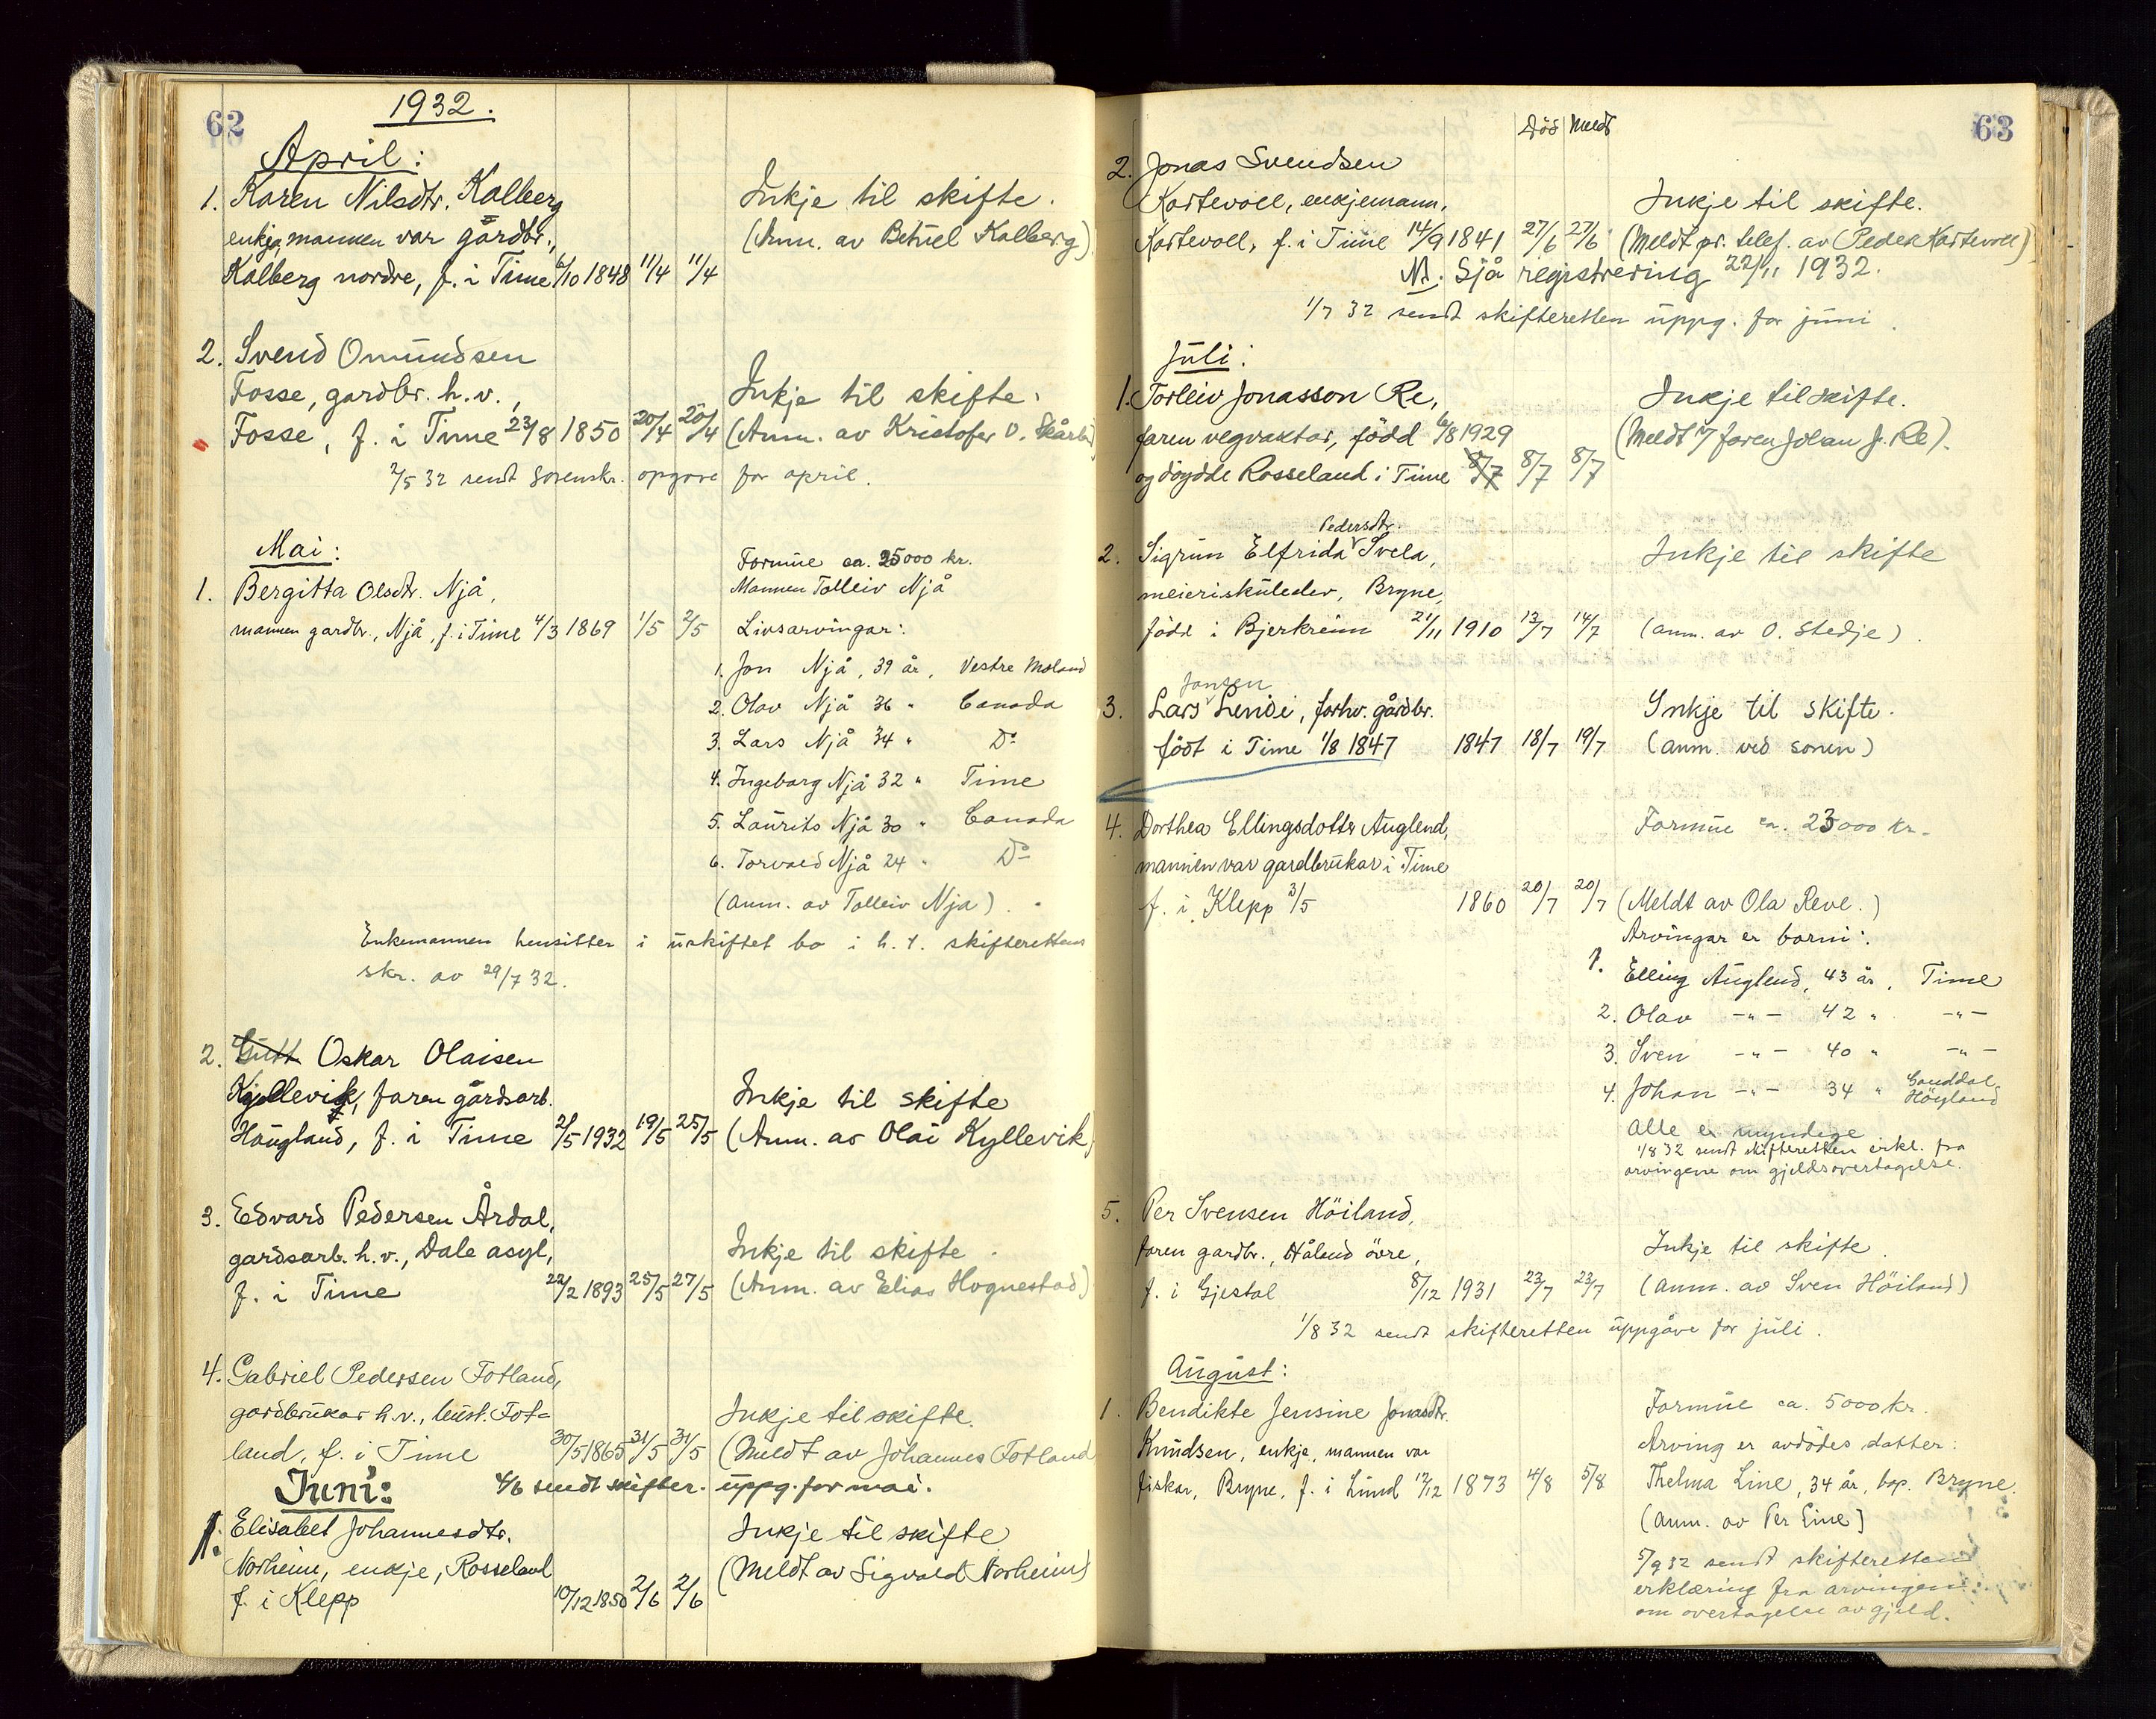 62
1932.
April:
1. Karen Nilsdtr. Kalberg
enkja, mannen var gårdbr.,
Kalberg nordre, f. i Time 6/10 1848 11/4 11/4
Inkje til skifte.
(Anm. av Betuel Kalberg)
2. Svend Omundsen
Fosse, gardbr. h.v.,
Fosse, f. i Time 23/8 1850 20/4 25/4
Inkje til skifte.
(Anm. av Kristofer O.
2/5 32 sendt Sorenskr. opgave for april.
Mai:
1. Bergitta Olsdtr. Njå,
mannen gardbr., Njå, f. i Time 4/3 1869 1/5 2/5
Formue ca. 25000 kr.
Mannen Tolleiv Njå
Livsarvingar:
1. Jon Njå, 39 år, Vestre Moland
2. Olav Njå 36 " Canada
3. Lars Njå 34 " Do
4. Ingeborg Njå 32 " Time
5. Laurits Njå 30 " Canada
6. Torvald Njå 24 " Do
(Anm. av Tolleiv Njå).
Enkemannen hensitter i uskiftet bo i h. t. skifterettens
skr. av 29/7 32.
2. Gutt Oskar Olaisen
Kyllevik, faren gårdsarb.
Haugland, f. i Time 21/5 1932 19/5 25/5
Inkje til skifte
(Anm. av Olai Kyllevik)
3. Edvard Pedersen Årdal,
gardsarb. h.v., Dale asyl,
f. i Time 22/2 1893 25/5 27/5
Inkje til skifte.
(Anm. av Elias Hognestad)
4. Gabriel Pedersen Fotland,
gardbrukar h.v., bust. Fot=
land, f. i Time 30/5 1865 31/5 31/5
Inkje til skifte.
(Meldt av Johannes Fotland
Juni: 4/6 sendt skifter. uppg. for mai.
1. Elisabet Johannesdtr.
Norheim, enkje, Rosseland
f. i Klepp 10/12 1850 2/6 2/6
Inkje til skifte
(Meldt av Sigvald Norheim)
63
Död Meldt
2. Jonas Svendsen
Kartevoll, enkjemann,
Kartevoll, f. i Time 14/9 1841 27/6 27/6
Inkje til skifte.
(Meldt pr. telef. av Peder Kartevoll)
Nb. Sjå registrering 22/11 1932.
1/7 32 sendt skifteretten uppg. for juni.
Juli:
1. Torleiv Jonasson Re,
faren vegvaktar, född 6/8 1929
og döydde Rosseland i Time 8/7 8/7 8/7
Inkje til skifte.
(Meldt av faren Johan J. Re).
2. Sigrun Elfrida Pedersdtr. Svela,
meieriskuleelev, Bryne,
född i Bjerkreim 21/11 1910 13/7 14/7
Inkje til skifte
(anm. av O. Stedje).
3. Lars Jonsen Lende, forhv. gårdbr.
födt i Time 1/8 1847 1847 18/7 19/7
Inkje til skifte.
(anm. ved sonen)
4. Dorthea Ellingsdotter Auglend,
mannen var gardbrukar i Time
f. i Klepp 3/5 1860 20/7 20/7
Formue ca. 23000 kr.
(Meldt av Ola Reve.)
Arvingar er borni:
1. Elling Auglend, 43 år, Time
2. Olav -"- 42 " -"-
3. Sven -"- 40 " -"-
4. Johan -"- 34 " Ganddal, Höyland
Alle er myndige
1/8 32 sendt skifteretten erkl. fra
arvingene om gjeldsovertagelse.
5. Per Svensen Höiland,
faren gardbr., Håland övre,
f. i Gjestal 8/12 1931 23/7 23/7
Inkje til skifte.
(anm. av Sven Höiland)
1/8 32 sendt skifteretten uppgåve for juli.
August:
1. Bendikte Jensine Jonasdtr.
Knudsen, enkje, mannen var
fiskar, Bryne, f. i Lund 12/12 1873 4/8 5/8
Formue ca. 5000 kr.
Arving er avdödes datter:
Thelma Line, 34 år, bop. Bryne.
(anm. av Per Line)
5/9 32 sendt skifteretten
erklæring fra arvingen
om overtagelse av gjeld.